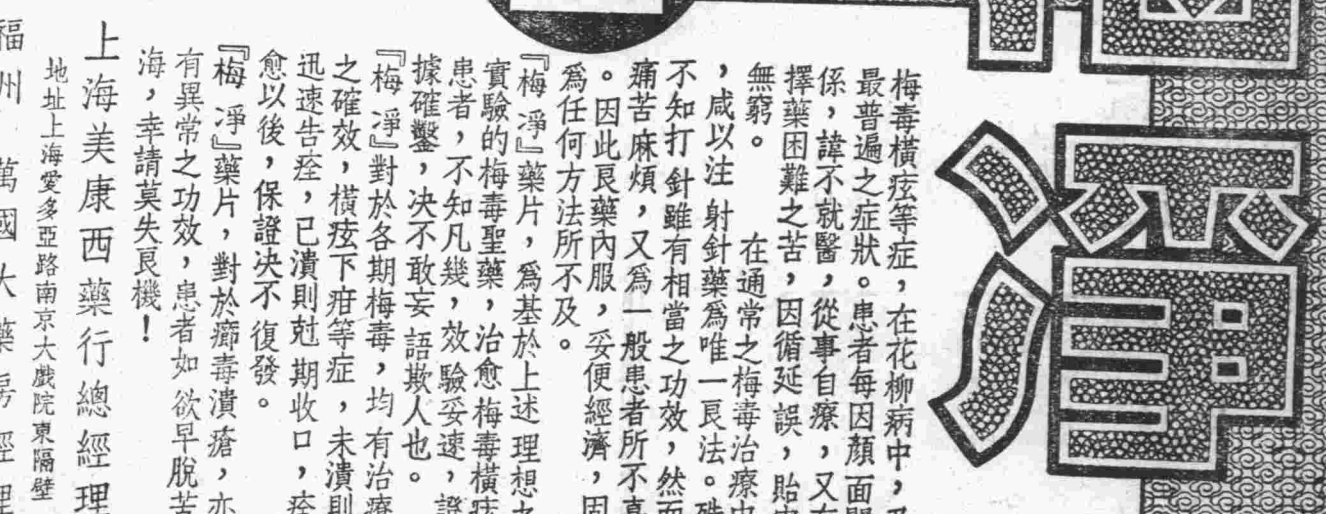 淨
梅毒橫痃等症，在花柳病中，
最普遍之症狀。患者每因顏面
係，諱不就醫，從事自療，又
擇藥困難之苦，因循延誤，貽
無窮。　　在通常之梅毒治療
，咸以注射針藥爲唯一良法。殊
不知打針雖有相當之功效，然而
痛苦麻煩，又爲一般患者所不
。因此良藥內服，妥便經濟，固
爲任何方法所不及。
『梅淨』藥片，爲基於上述理想
實驗的梅毒聖藥，治愈梅毒橫痃
患者，不知凡幾，效驗妥速，證
據確鑿，決不敢妄語欺人也。
『梅淨』對於各期梅毒，均有治療
之確效，橫痃下疳等症，未潰則
迅速告痊，已潰則尅期收口，痊
愈以後，保證決不復發。
『梅淨』藥片，對於癤毒潰瘡，亦
有異常之功效，患者如欲早脫苦
海，幸請莫失良機！
上海美康西藥行總經理
地址上海愛多亞路南京大戲院東隔壁
福州萬國大藥房經理